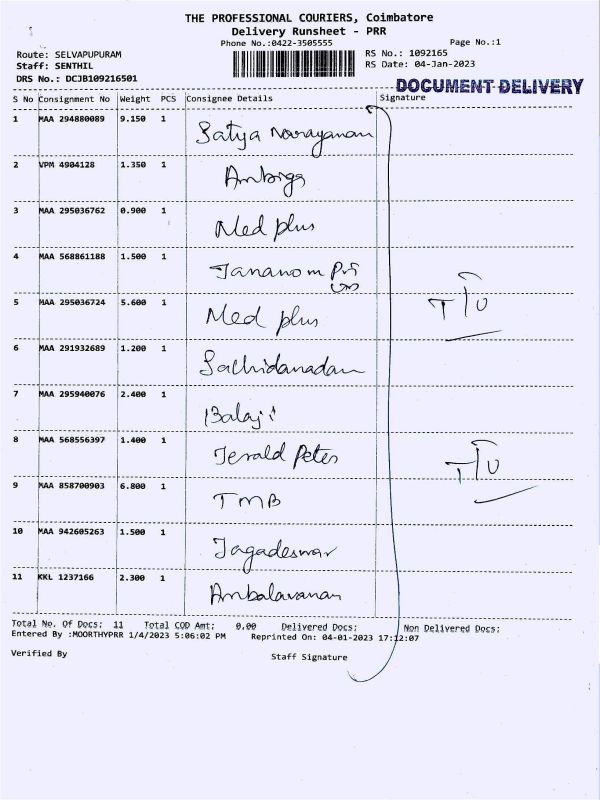 THE PROFESSIONAL COURIERS, Coimbatore
Delivery Runsheet - PRR
Phone No.:0422-3505555
Page No.:1
Route: SELVAPUPURAM
RS No.: 1092165
Staff: SENTHIL
RS Date: 04-Jan-2023
DRS No.: DCJB109216501
DOCUMENT DELIVERY
S No Consignment No Weight PCS Consignee Details Signature
1 MAA 294880089 9.150 1 Satya Narayanan
2 VPM 4904128 1.350 1 Ambiga
3 MAA 295036762 0.900 1 Med plus
4 MAA 568861188 1.500 1 Jananom Pri
5 MAA 295036724 5.600 1 Med plus
6 MAA 291932689 1.200 1 Sachidanadam
7 MAA 295940076 2.400 1 Balaji
8 MAA 568556397 1.400 1 Jerald Peter
9 MAA 858700903 6.800 1 TMB
10 MAA 942605263 1.500 1 Jagadeswar
11 KKL 1237166 2.300 1 Ambalavanan
Total No. Of Docs: 11 Total COD Amt: 0.00 Delivered Docs: Non Delivered Docs:
Entered By :MOORTHYPRR 1/4/2023 5:06:02 PM Reprinted On: 04-01-2023 17:12:07
Verified By Staff Signature